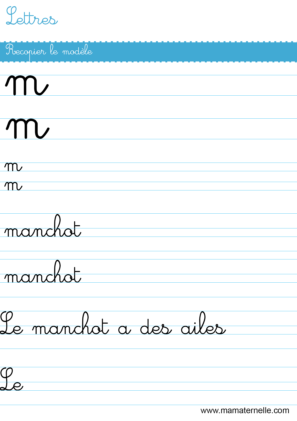 Lettres
Recopier le modèle
m
m
m
m
manchot
manchot
Le manchot a des ailes
Le
www.mamaternelle.com